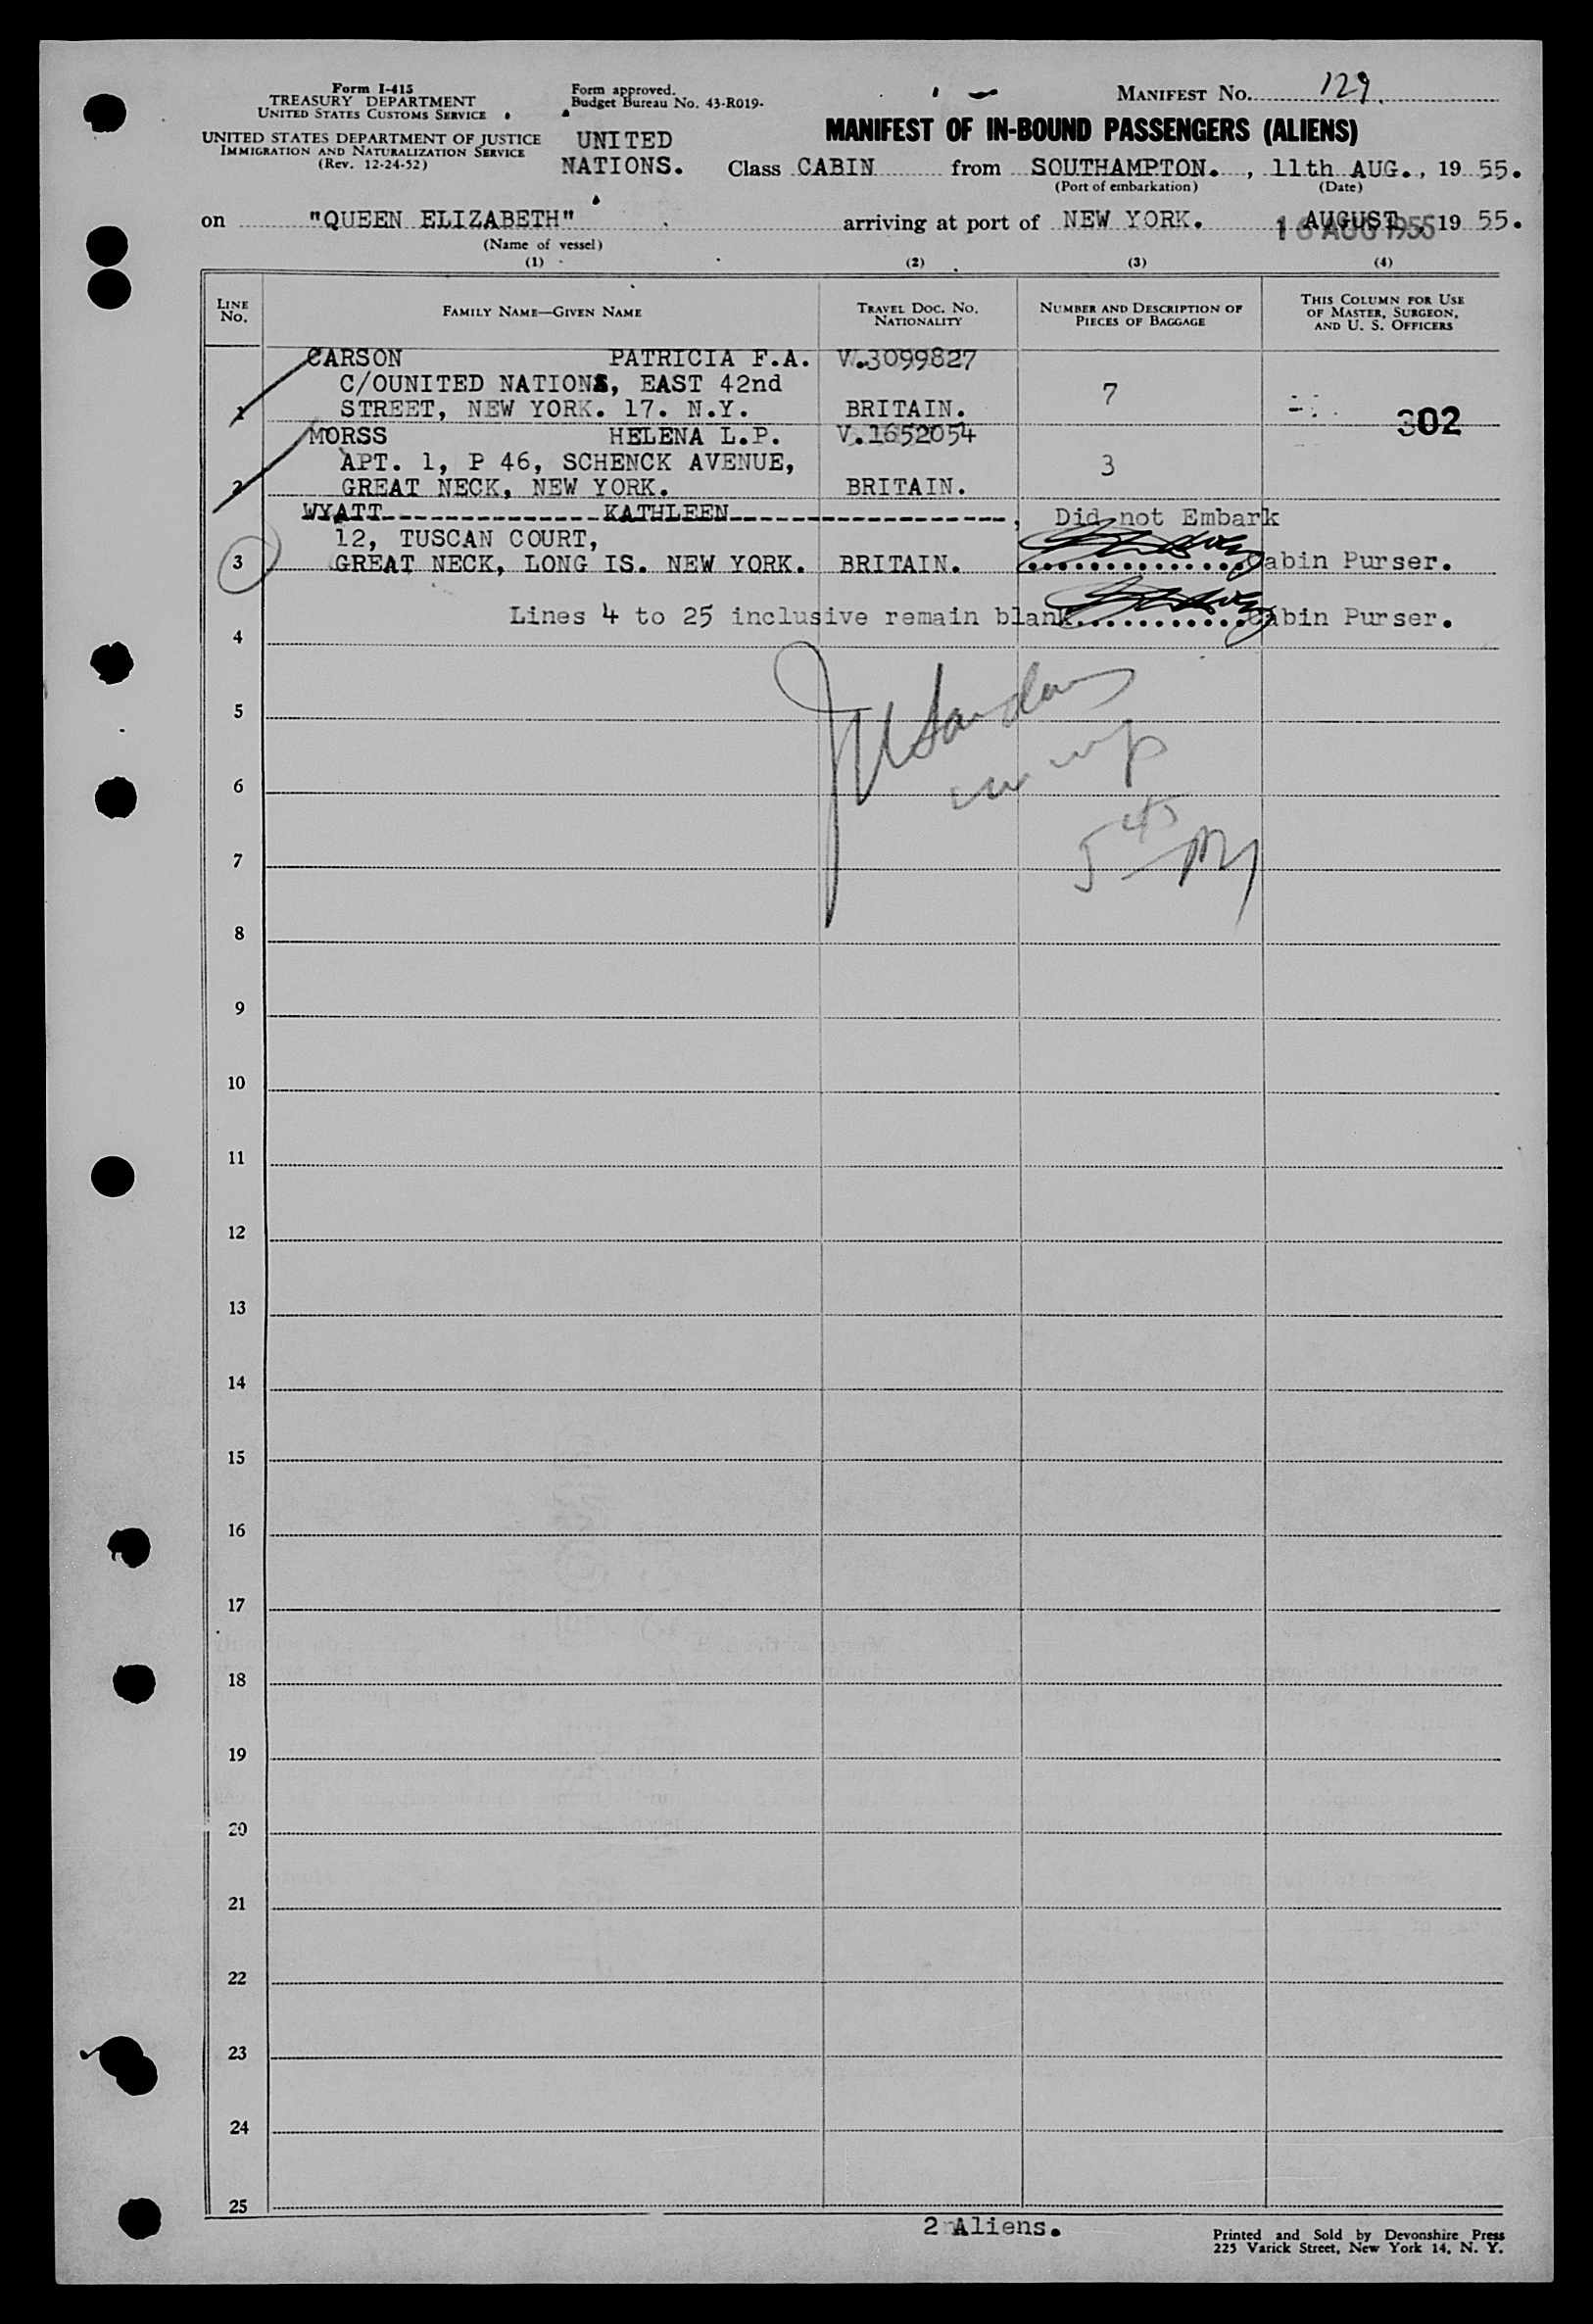 Form I-415
TREASURY DEPARTMENT
UNITED STATES CUSTOMS SERVICE
UNITED STATES DEPARTMENT OF JUSTICE
IMMIGRATION AND NATURALIZATION SERVICE
(Rev. 12-24-52)
Form approved.
Budget Bureau No. 43-R019-
UNITED
NATIONS.
MANIFEST NO. 129.
MANIFEST OF IN-BOUND PASSENGERS (ALIENS)
Class CABIN from SOUTHAMPTON. , 11th AUG. , 19 55.
(Port of embarkation) (Date)
on "QUEEN ELIZABETH" arriving at port of NEW YORK. AUGUST , 19 55.
16 AUG 1955
(Name of vessel)
(1) (2) (3) (4)
LINE NO. FAMILY NAME—GIVEN NAME TRAVEL DOC. NO. NATIONALITY NUMBER AND DESCRIPTION OF PIECES OF BAGGAGE THIS COLUMN FOR USE OF MASTER, SURGEON, AND U. S. OFFICERS
CARSON PATRICIA F.A. V.3099827
C/OUNITED NATIONS, EAST 42nd 7
1 STREET, NEW YORK. 17. N.Y. BRITAIN. 302
MORSS HELENA L.P. V.1652054
APT. 1, P 46, SCHENCK AVENUE, 3
2 GREAT NECK, NEW YORK. BRITAIN.
WYATT---------------KATHLEEN------------------, Did not Embark
12, TUSCAN COURT,
3 GREAT NECK, LONG IS. NEW YORK. BRITAIN. ..............Cabin Purser.
Lines 4 to 25 inclusive remain blank............Cabin Purser.
4
5
6
7
8
9
10
11
12
13
14
15
16
17
18
19
20
21
22
23
24
25
2 Aliens.
Printed and Sold by Devonshire Press
225 Varick Street, New York 14, N. Y.